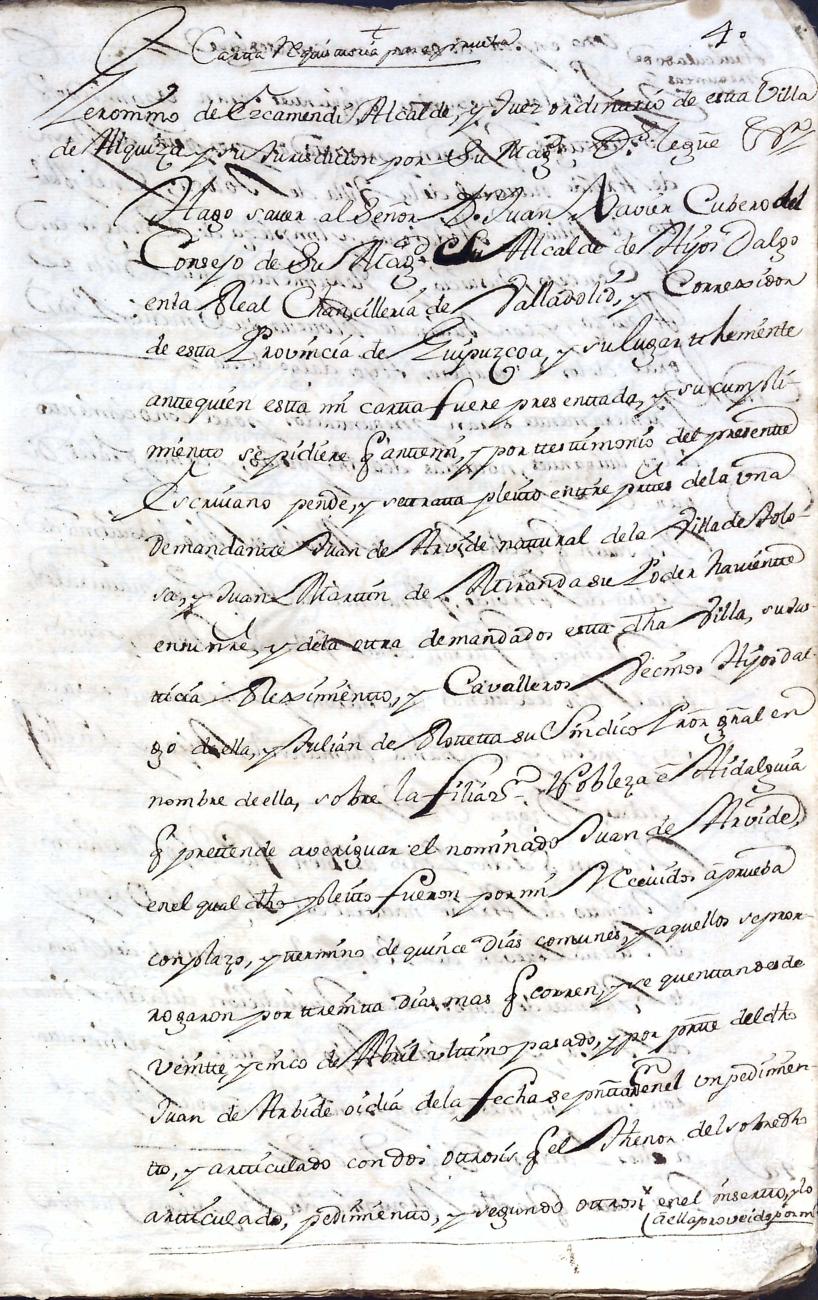 4º
Carta Requisitoria para esta prueba
Geronimo de Eccamendi Alcalde, y Juez ordinario de esta Villa
de Alquiza y su Jurisdicion por Su Magd, Dios le guе
Hago saver al Señor Dn Juan Xavier Cubero del
Consejo de Su Magd Su Alcalde de Hijos Dalgo
en la Real Chancilleria de Valladolid, y Correxidor
de esta Provincia de Guipuzcoa, y su lugar thenientte
antte quien esta mi cartta fuere presenttada, y su cumpli-
mientto se pidiere q antte mi, y por ttestimonio del presentte
Escrivano pende, y se ttratta pleitto enttre pttes de la una
Demandantte Juan de Arvide nattural de la Villa de Tolo-
sa, y Juan Marttin de Miranda su Poder havientte
en su nre, y de la ottra demandados esta dha Villa, su Jus-
ticia Reximientto, y Cavalleros Vecinos Hijos dal-
go de ella, y Julian de Rotetta su Sindico Pror gñal en
nombre de ella, sobre la filiazon Nobleza e Hidalguia
q prettende averiguar el nominado Juan de Arvide,
en el qual dho pleitto fueron por mi Recevidos a prueba
con plazo, y ttermino de quince dias comunes, y aquellos se pror-
rogaron por ttreintta dias mas q corren, y se quenttan desde
veintte, y cinco de Abril ulttimo pasado, y por partte del dho
Juan de Arbide oi dia de la fecha se pñtta en el un pedimien-
tto, y artticulado con dos ottrosis q el Thenor del sobredho
artticulado, pedimientto, y segundo ottrosi en el insertto, y lo
a ella proveido por mi